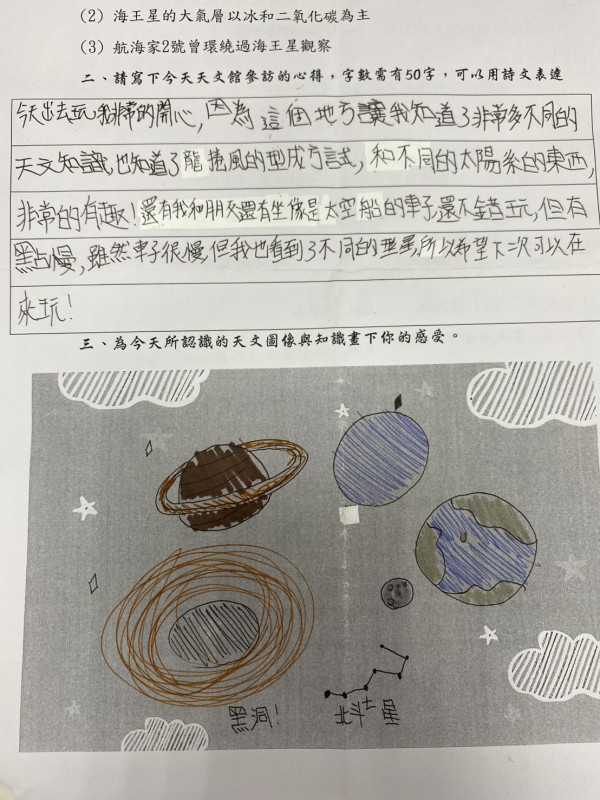 (2) 海王星的大氣層以冰和二氧化碳為主
(3) 航海家2號曾環繞過海王星觀察
二、請寫下今天天文館參訪的心得，字數需有50字，可以用詩文表達
今天出去玩我非常的開心，因為這個地方讓我知道了非常多不同的
天文知識，也知道了龍捲風的型成方試，和不同的太陽系的東西，
非常的有趣！還有我和朋友還有坐像是太空船的車子還不錯玩，但有
點慢，雖然車子很慢，但我也看到了不同的星，所以希望下次可以在
來玩！
三、為今天所認識的天文圖像與知識畫下你的感受。
黑洞！
北斗七星